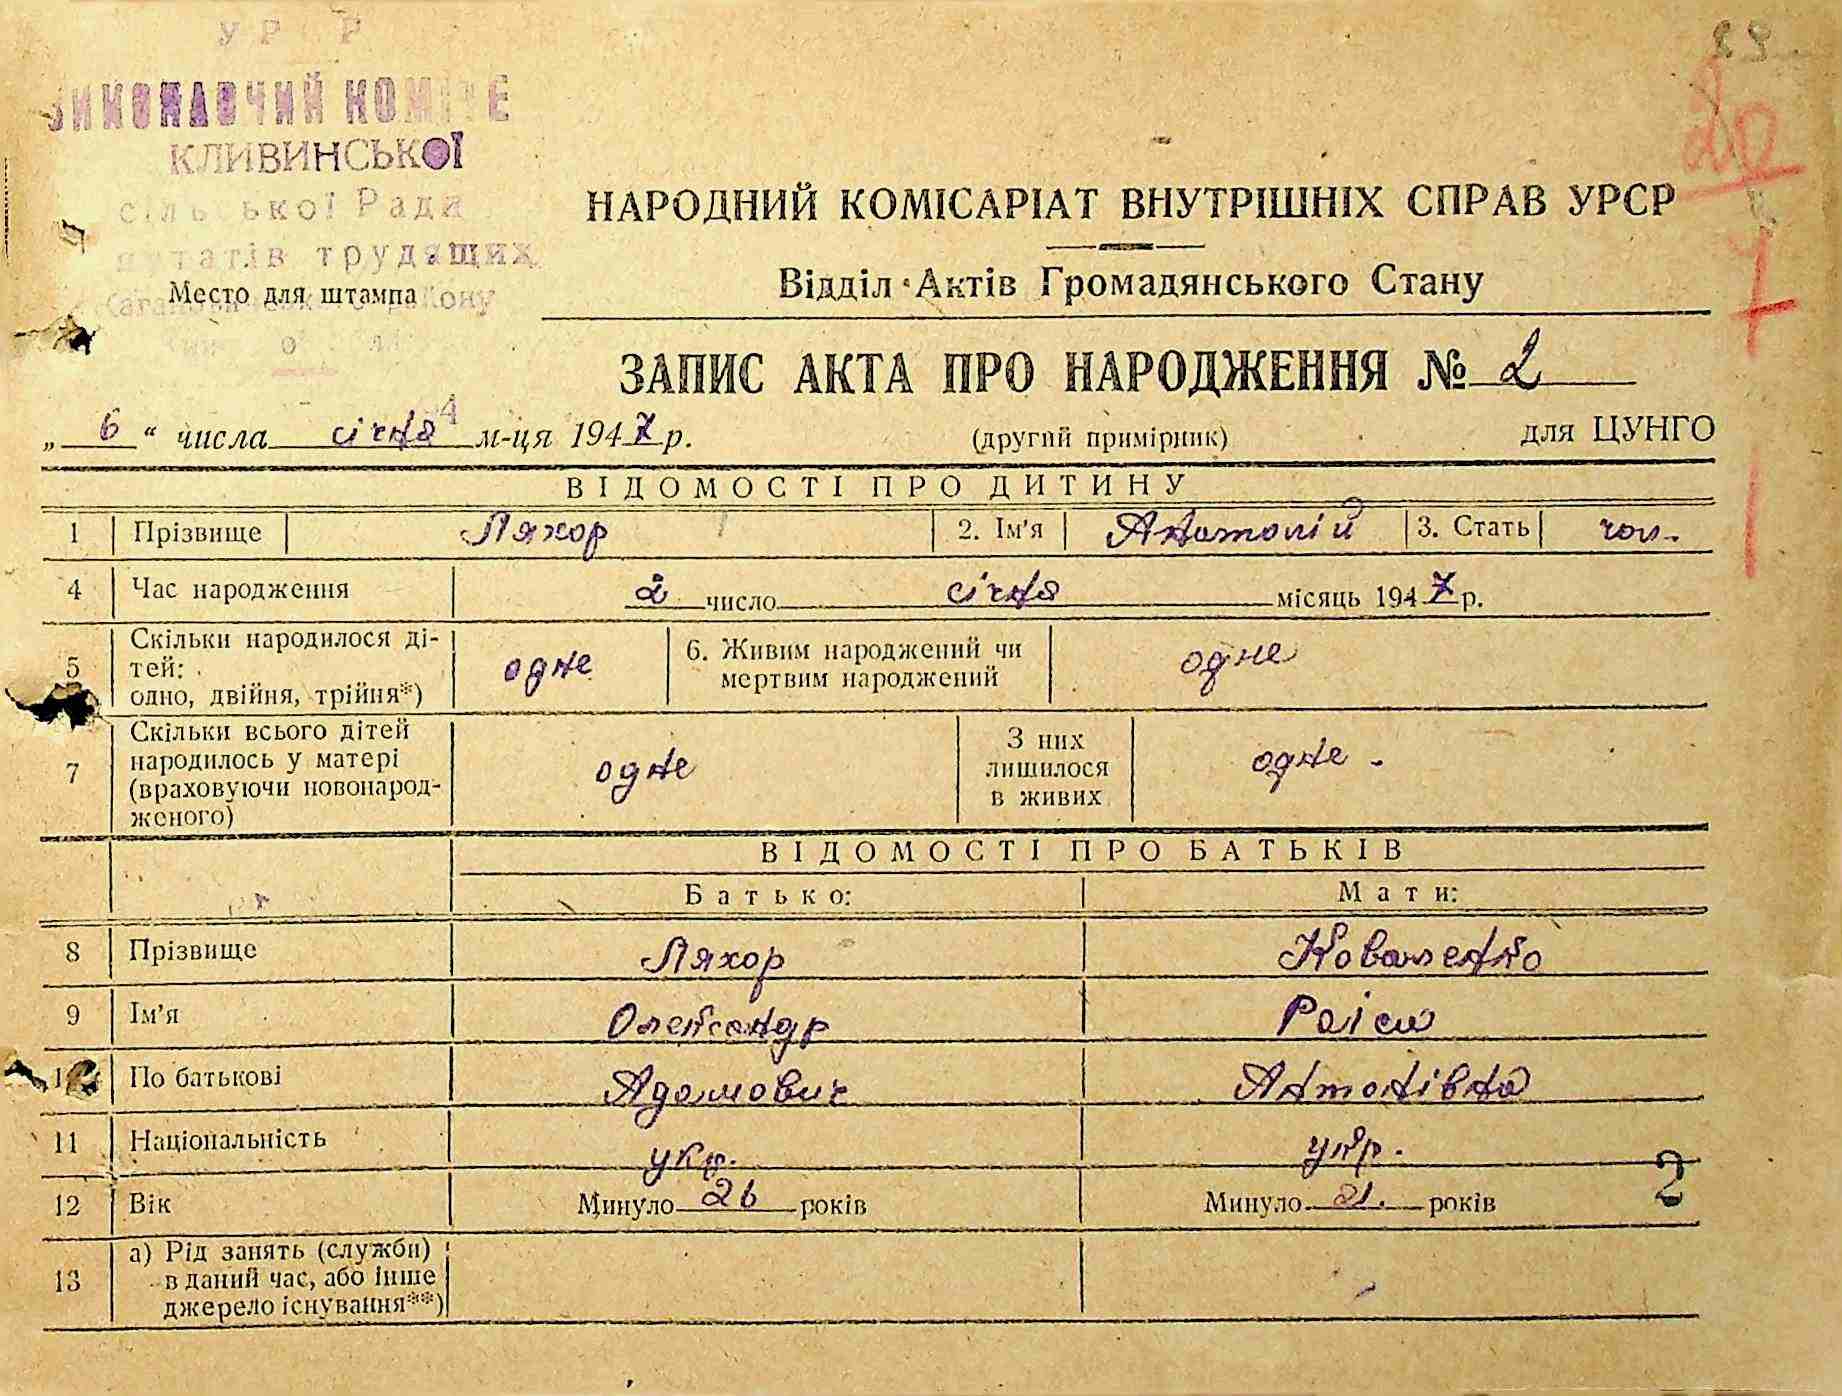 УРСР
ВИКОНАВЧИЙ КОМІТЕ
КЛИВИНСЬКОЇ
сільської Ради
путатів трудящих
Место для штампа
НАРОДНИЙ КОМІСАРІАТ ВНУТРІШНІХ СПРАВ УРСР
Відділ Актів Громадянського Стану
ЗАПИС АКТА ПРО НАРОДЖЕННЯ № 2
„ 6 “ числа січня м-ця 1947 р. (другий примірник) для ЦУНГО
ВІДОМОСТІ ПРО ДИТИНУ
1 Прізвище Ляхор 2. Ім'я Анатолій 3. Стать чол.
4 Час народження 2 число січня місяць 1947 р.
5 Скільки народилося ді-
тей:
одно, двійня, трійня*) одне 6. Живим народжений чи
мертвим народжений одне
7 Скільки всього дітей
народилось у матері
(враховуючи новонарод-
женого) одне З них
лишилося
в живих одне.
ВІДОМОСТІ ПРО БАТЬКІВ
Батько: Мати:
8 Прізвище Ляхор Коваленко
9 Ім'я Олександр Раіса
10 По батькові Адамович Антонівна
11 Національність укр. укр.
12 Вік Минуло 26 років Минуло 21. років
2
13 а) Рід занять (служби)
в даний час, або інше
джерело існування**)